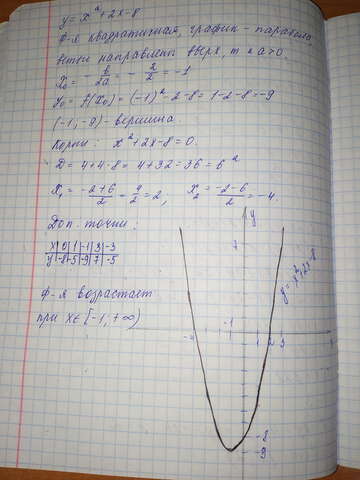 y = x² + 2x - 8
Ф-я квадратичная, график - парабола,
ветви направлены вверх, т к a>0
x₀ = - b/2a = - 2/2 = -1
y₀ = f(x₀) = (-1)² - 2 - 8 = 1 - 2 - 8 = -9
(-1; -9) - вершина
Корни: x² + 2x - 8 = 0.
D = 4 + 4·8 = 4 + 32 = 36 = 6²
x₁ = -2+6/2 = 4/2 = 2, x₂ = -2-6/2 = -4.
Доп. точки:
x | 0 | 1 | -1 | 3 | -3
y | -8 | -5 | -9 | 7 | -5
Ф-я возрастает
при x ∈ [-1; +∞)
y
7
y = x² + 2x - 8
-1
-4
2 3
-8
-9